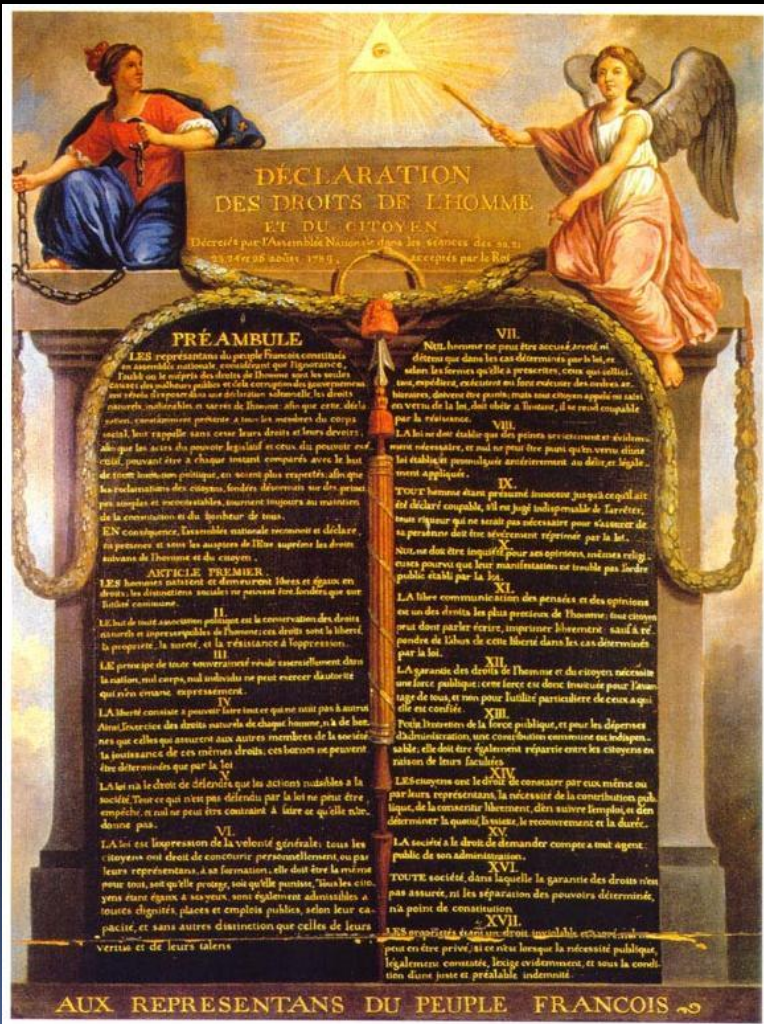 DÉCLARATION
DES DROITS DE L'HOMME
ET DU CITOYEN
Décretés par l'Assemblée Nationale dans les séances des 20, 21
23, 24 et 26 août 1789, acceptés par le Roi
PRÉAMBULE
LES représentans du peuple François constitués
en assemblée nationale, considérant que l'ignorance,
l'oubli ou le mépris des droits de l'homme sont les seules
causes des malheurs publics et de la corruption des gouvernemens
ont résolu d'exposer dans une déclaration solemnelle, les droits
naturels, inaliénables et sacrés de l'homme; afin que cette décla
ration, constamment présente à tous les membres du corps
social, leur rappelle sans cesse leurs droits et leurs devoirs;
afin que les actes du pouvoir législatif et ceux du pouvoir exé
cutif, pouvant être à chaque instant comparés avec le but
de toute institution politique, en soient plus respectés; afin que
les réclamations des citoyens, fondées désormais sur des princi
pes simples et incontestables, tournent toujours au maintien
de la constitution et du bonheur de tous.
EN conséquence, l'assemblée nationale reconnoit et déclare,
en présence et sous les auspices de l'Etre suprême les droits
suivans de l'homme et du citoyen.
ARTICLE PREMIER.
LES hommes naissent et demeurent libres et égaux en
droits; les distinctions sociales ne peuvent être fondées que sur
l'utilité commune.
II.
LE but de toute association politique est la conservation des droits
naturels et imprescriptibles de l'homme; ces droits sont la liberté,
la propriété, la sureté, et la résistance à l'oppression.
III.
LE principe de toute souveraineté réside essentiellement dans
la nation, nul corps, nul individu ne peut exercer d'autorité
qui n'en émane expressément.
IV.
LA liberté consiste à pouvoir faire tout ce qui ne nuit pas à autrui
Ainsi, l'exercice des droits naturels de chaque homme, n'a de bor
nes que celles qui assurent aux autres membres de la société
la jouissance de ces mêmes droits; ces bornes ne peuvent
être déterminées que par la loi
V.
LA loi n'a le droit de défendre que les actions nuisibles à la
société. Tout ce qui n'est pas défendu par la loi ne peut être
empêché, et nul ne peut être contraint à faire ce qu'elle n'or-
donne pas.
VI.
LA loi est l'expression de la volonté générale; tous les
citoyens ont droit de concourir personnellement, ou par
leurs représentans, à sa formation; elle doit être la même
pour tous, soit qu'elle protege, soit qu'elle punisse. Tous les cito-
yens étant égaux à ses yeux, sont également admissibles à
toutes dignités, places et emplois publics, selon leur ca-
pacité, et sans autres distinction que celles de leurs
vertus et de leurs talens
VII.
NUL homme ne peut être accusé, arreté, ni
détenu que dans les cas déterminés par la loi, et
selon les formes qu'elle a prescrites, ceux qui sollici-
tent, expédient, exécutent ou font exécuter des ordres ar-
bitraires, doivent être punis; mais tout citoyen appelé ou saisi
en vertu de la loi, doit obéir à l'instant, il se rend coupable
par la résistance.
VIII.
LA loi ne doit établir que des peines strictement et évidem-
ment nécessaire, et nul ne peut être puni qu'en vertu d'une
loi établie et promulguée antérierement au délit, et légale-
ment appliquée.
IX.
TOUT homme étant présumé innocent jusqu'à ce qu'il ait
été déclaré coupable, s'il est jugé indispensable de l'arrêter,
toute rigueur qui ne serait pas nécessaire pour s'assurer de
sa personne doit être sévèrement réprimée par la loi.
X.
NUL ne doit être inquiété pour ses opinions, mêmes religi-
euses pourvu que leur manifestation ne trouble pas l'ordre
public établi par la loi.
XI.
LA libre communication des pensées et des opinions
est un des droits les plus precieux de l'homme; tout citoyen
peut dont parler écrire, imprimer librement: sauf à ré-
pondre de l'abus de cette liberté dans les cas déterminés
par la loi.
XII.
LA garantie des droits de l'homme et du citoyen nécessite
une force publique; cette force est donc instituée pour l'avan-
tage de tous, et non pour l'utilité particuliere de ceux a qui
elle est confiée.
XIII.
Pour l'entretien de la force publique, et pour les dépenses
d'administration, une contribution commune est indispen-
sable; elle doit être également répartie entre les citoyens en
raison de leurs facultées
XIV.
LES citoyens ont le droit de constater par eux même ou
par leurs représentans, la nécessité de la contribution pub-
lique, de la consentir librement, d'en suivre l'emploi, et d'en
déterminer la quotité, l'assiete, le recouvrement et la durée.
XV.
LA société a le droit de demander compte a tout agent
public de son administration.
XVI.
TOUTE société, dans laquelle la garantie des droits n'est
pas assurée, ni les séparation des pouvoirs déterminée,
n'a point de constitution
XVII.
LES propriétés étant un droit inviolable et sacré, nul ne
peut en être privé, si ce n'est lorsque la nécessité publique,
légalement constatée, l'exige evidemment, et sous la condi-
tion d'une juste et préalable indemnité
AUX REPRESENTANS DU PEUPLE FRANCOIS